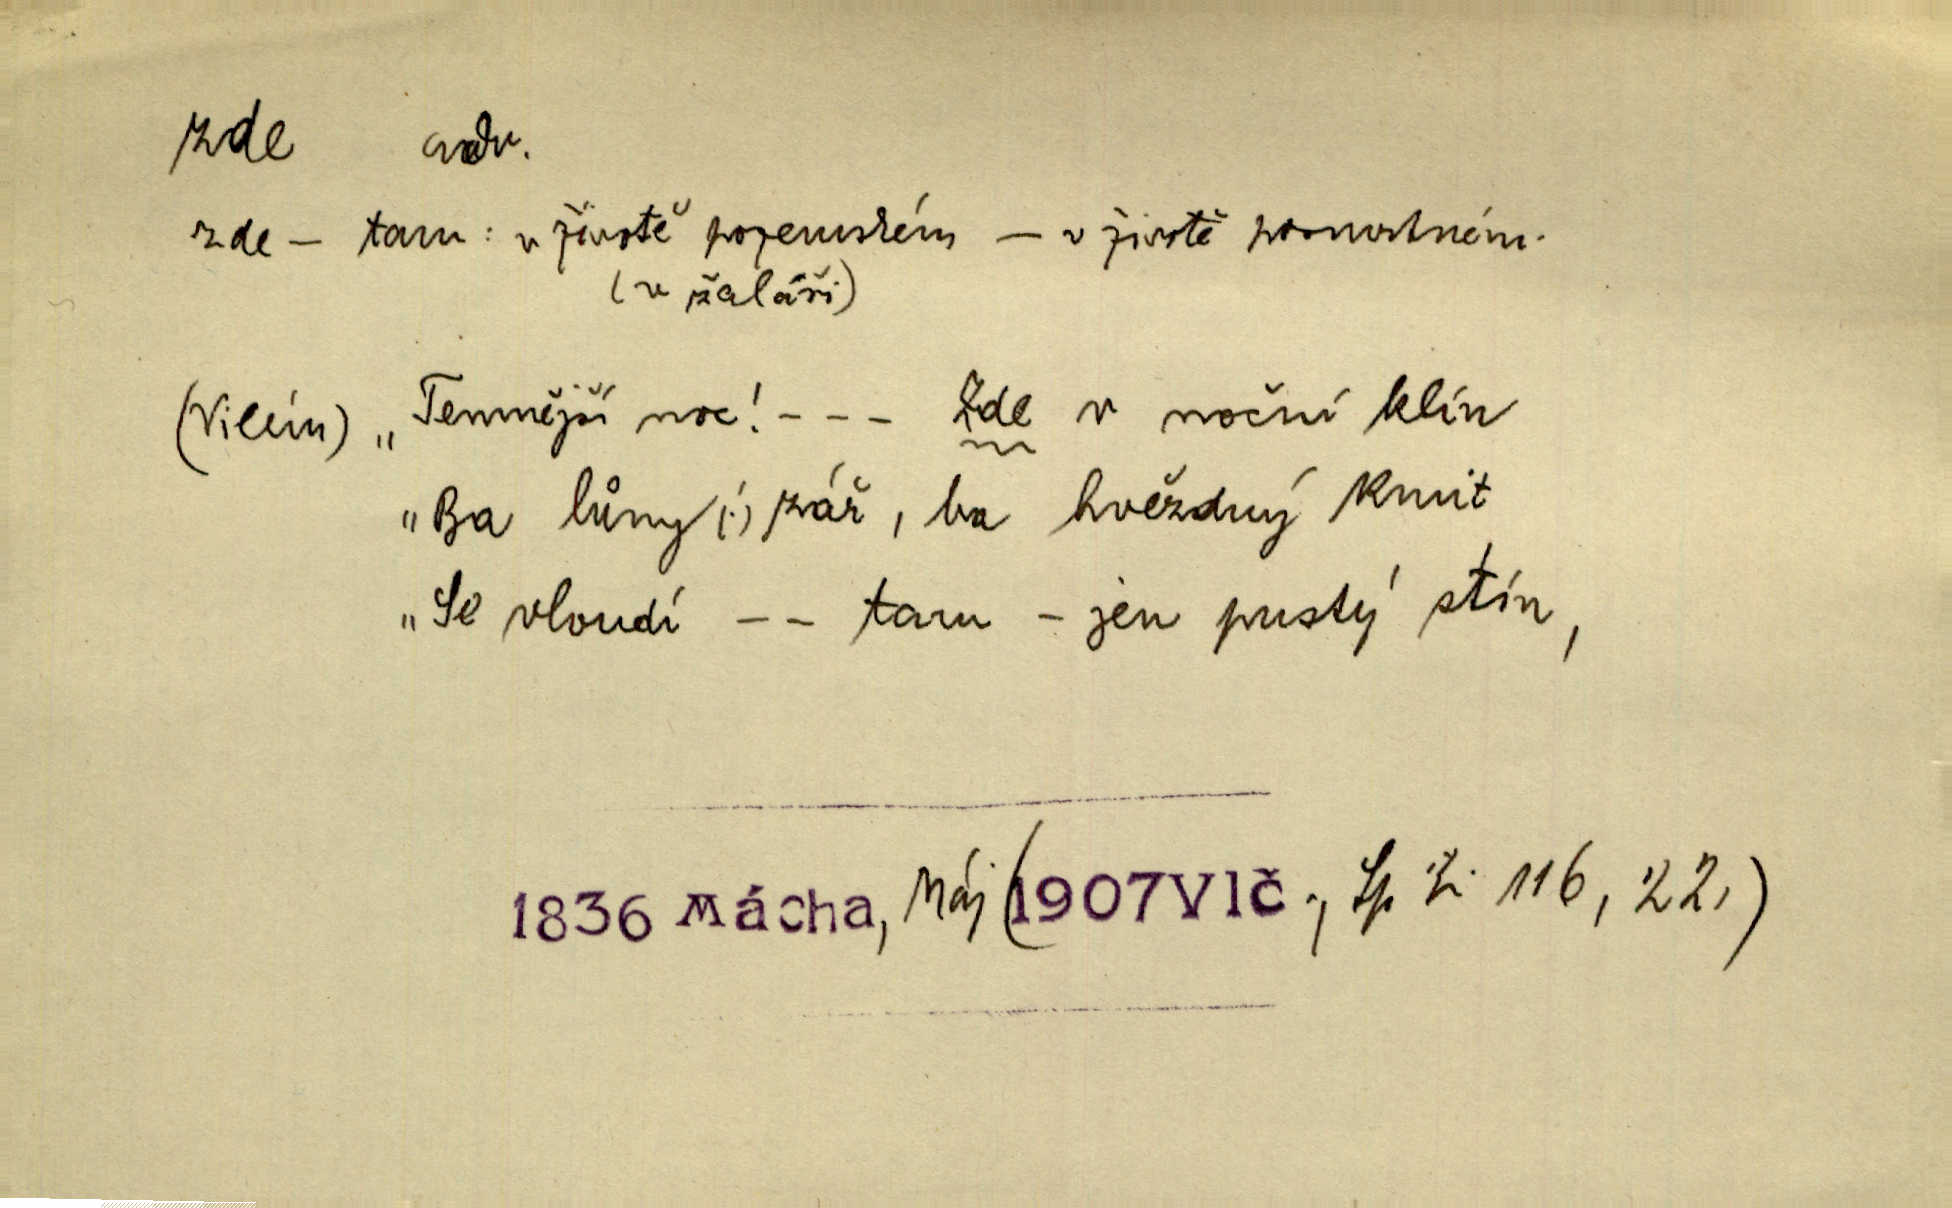 zde adv.
zde — tam: v životě pozemském — v životě posmrtném.
(v žaláři)
(Vilém) „Temnější noc! - - - Zde v noční klín
„Ba lůny (!) zář, ba hvězdný kmit
„Se vloudí - - tam - jen pustý stín,
1836 Mácha, Máj (1907 Vlč., Sp ži 116, 22,)